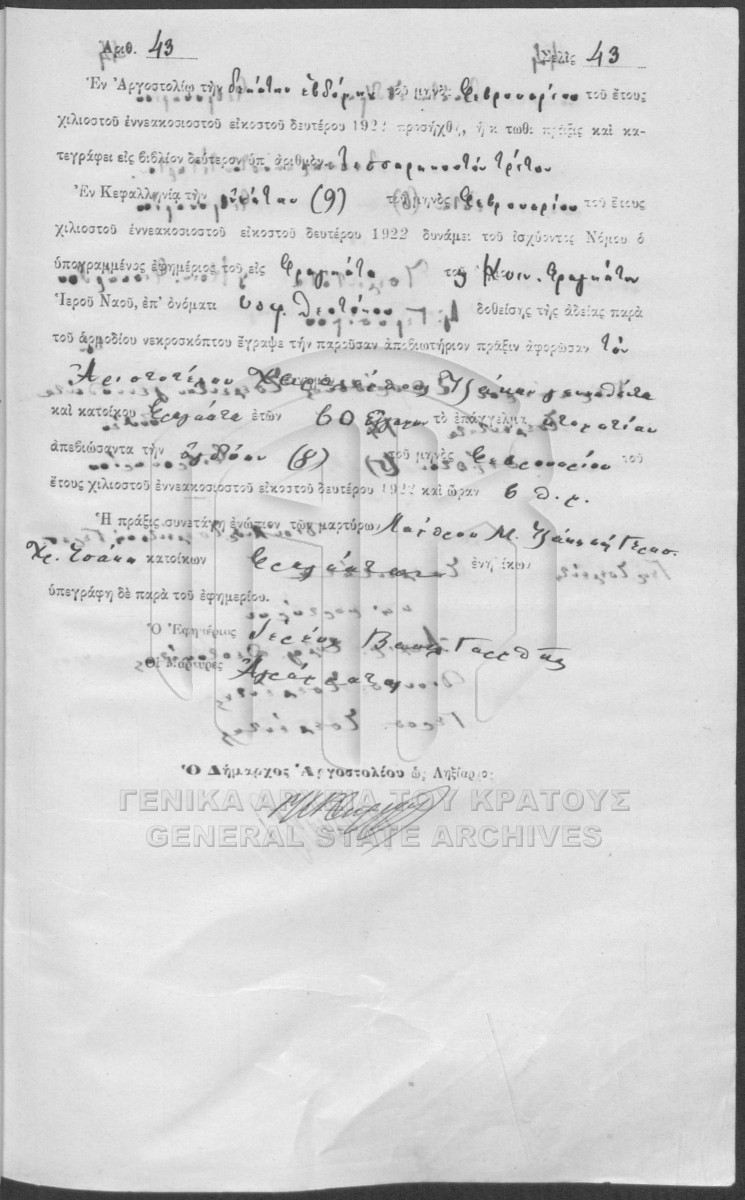 Ἀριθ. 43 Σελὶς 43
Ἐν Ἀργοστολίῳ τὴν δεκάτην ἑβδόμην τοῦ μηνὸς Φεβρουαρίου τοῦ ἔτους
χιλιοστοῦ ἐννεακοσιοστοῦ εἰκοστοῦ δευτέρου 1922 προσήχθη, ἡ κάτωθι πρᾶξις καὶ κα-
τεγράφει εἰς βιβλίον δεύτερον ὑπ᾽ ἀριθμὸν Τεσσαρακοστὸν τρίτον
Ἐν Κεφαλληνίᾳ τὴν ἐνάτην (9) τοῦ μηνὸς Φεβρουαρίου τοῦ ἔτους
χιλιοστοῦ ἐννεακοσιοστοῦ εἰκοστοῦ δευτέρου 1922 δυνάμει τοῦ ἰσχύοντος Νόμου ὁ
ὑπογραμμένος ἐφημέριος τοῦ εἰς Φραγκάτα τοῦ Κοιν. Φραγκάτων
Ἱεροῦ Ναοῦ, ἐπ᾽ ὀνόματι Θεοτόκου δοθείσης τῆς ἀδείας παρὰ
τοῦ ἁρμοδίου νεκροσκόπτου ἔγραψε τὴν παροῦσαν ἀποβιωτήριον πρᾶξιν ἀφορῶσαν τὸν
Ἀριστοτέλην γεννηθέντα
καὶ κατοίκου Φραγκάτα ἐτῶν 60 τὸ ἐπάγγελμα κτηματίαν
ἀπεβιώσαντα τὴν ὀγδόην (8) τοῦ μηνὸς Φεβρουαρίου τοῦ
ἔτους χιλιοστοῦ ἐννεακοσιοστοῦ εἰκοστοῦ δευτέρου 1922 καὶ ὥραν 6 π. μ.
Ἡ πρᾶξις συνετάγη ἐνώπιον τῶν μαρτύρων Μ. Γερασ.
Χρ. κατοίκων Φραγκάτων ἐνηλίκων
ὑπεγράφη δὲ παρὰ τοῦ ἐφημερίου.
Ὁ Ἐφημέριος Ἱερεὺς
Οἱ Μάρτυρες Ἀγράμματοι
Ὁ Δήμαρχος Ἀργοστολίου ὡς Ληξίαρχος
ΓΕΝΙΚΑ ΑΡΧΕΙΑ ΤΟΥ ΚΡΑΤΟΥΣ
GENERAL STATE ARCHIVES